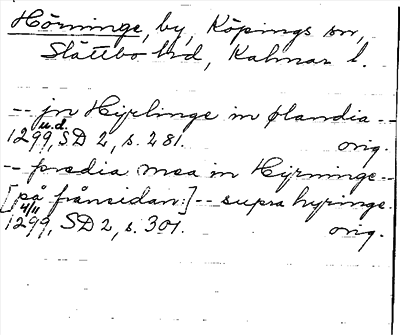 Hörninge, by, Köpings sn,
Slättbo hd, Kalmar l.
-- jn Hyrlinge in ølandia --
u.d.
1299, SD 2, s. 281. orig.
-- predia mea in Hyrninge --
[på frånsidan:] -- supra hyringe.
4/11
1299, SD 2, s. 301. orig.